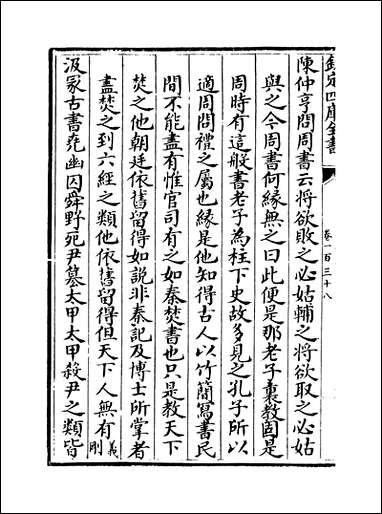 欽定四庫全書
卷一百三十八
陳仲亨問周書云將欲敗之必姑輔之將欲取之必姑
與之今周書何緣無之曰此便是那老子裏教固是
周時有這般書老子為柱下史故多見之孔子所以
適周問禮之屬也緣是他知得古人以竹簡寫書民
間不能盡有惟官司有之如秦焚書也只是教天下
焚之他朝廷依舊留得如說非秦記及博士所掌者
盡焚之到六經之類他依舊留得但天下人無有義剛
汲冢古書堯幽囚舜野死尹墓太甲太甲殺尹之類皆